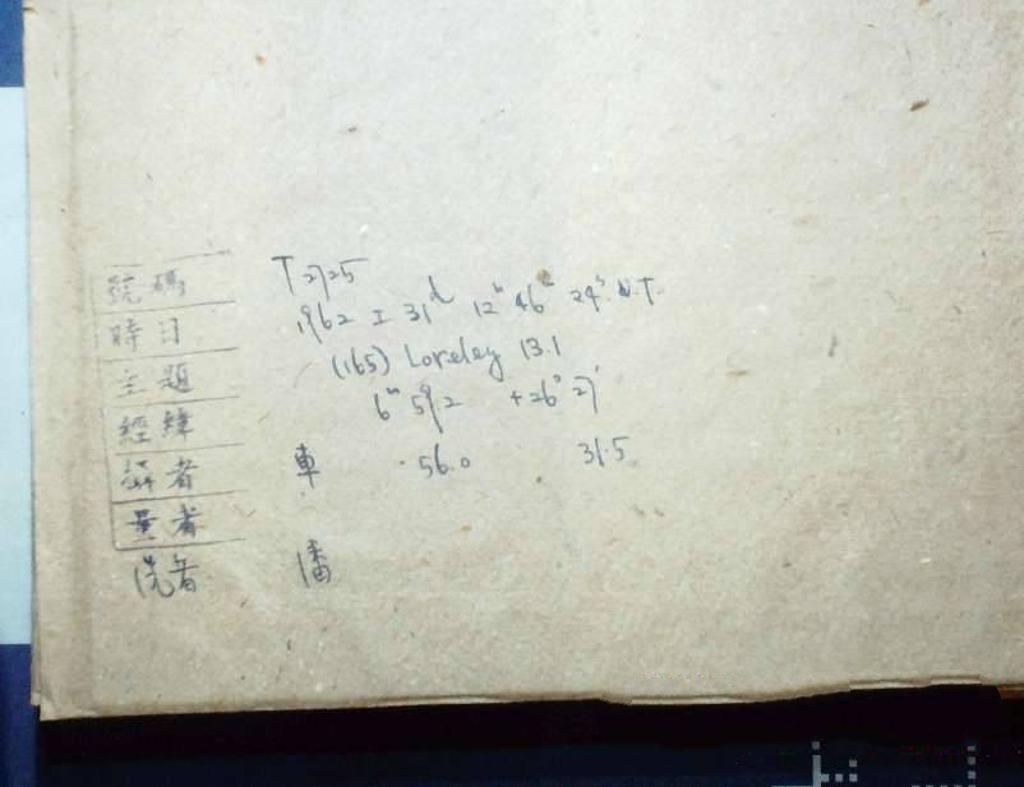 號碼 T2725
時日 1962 I 31d 12h 46m 24s U.T.
主題 (165) Loreley 13.1
經緯 6m 59.2 +26° 27'
攝者 車 56.0 31.5
量者
洗者 潘